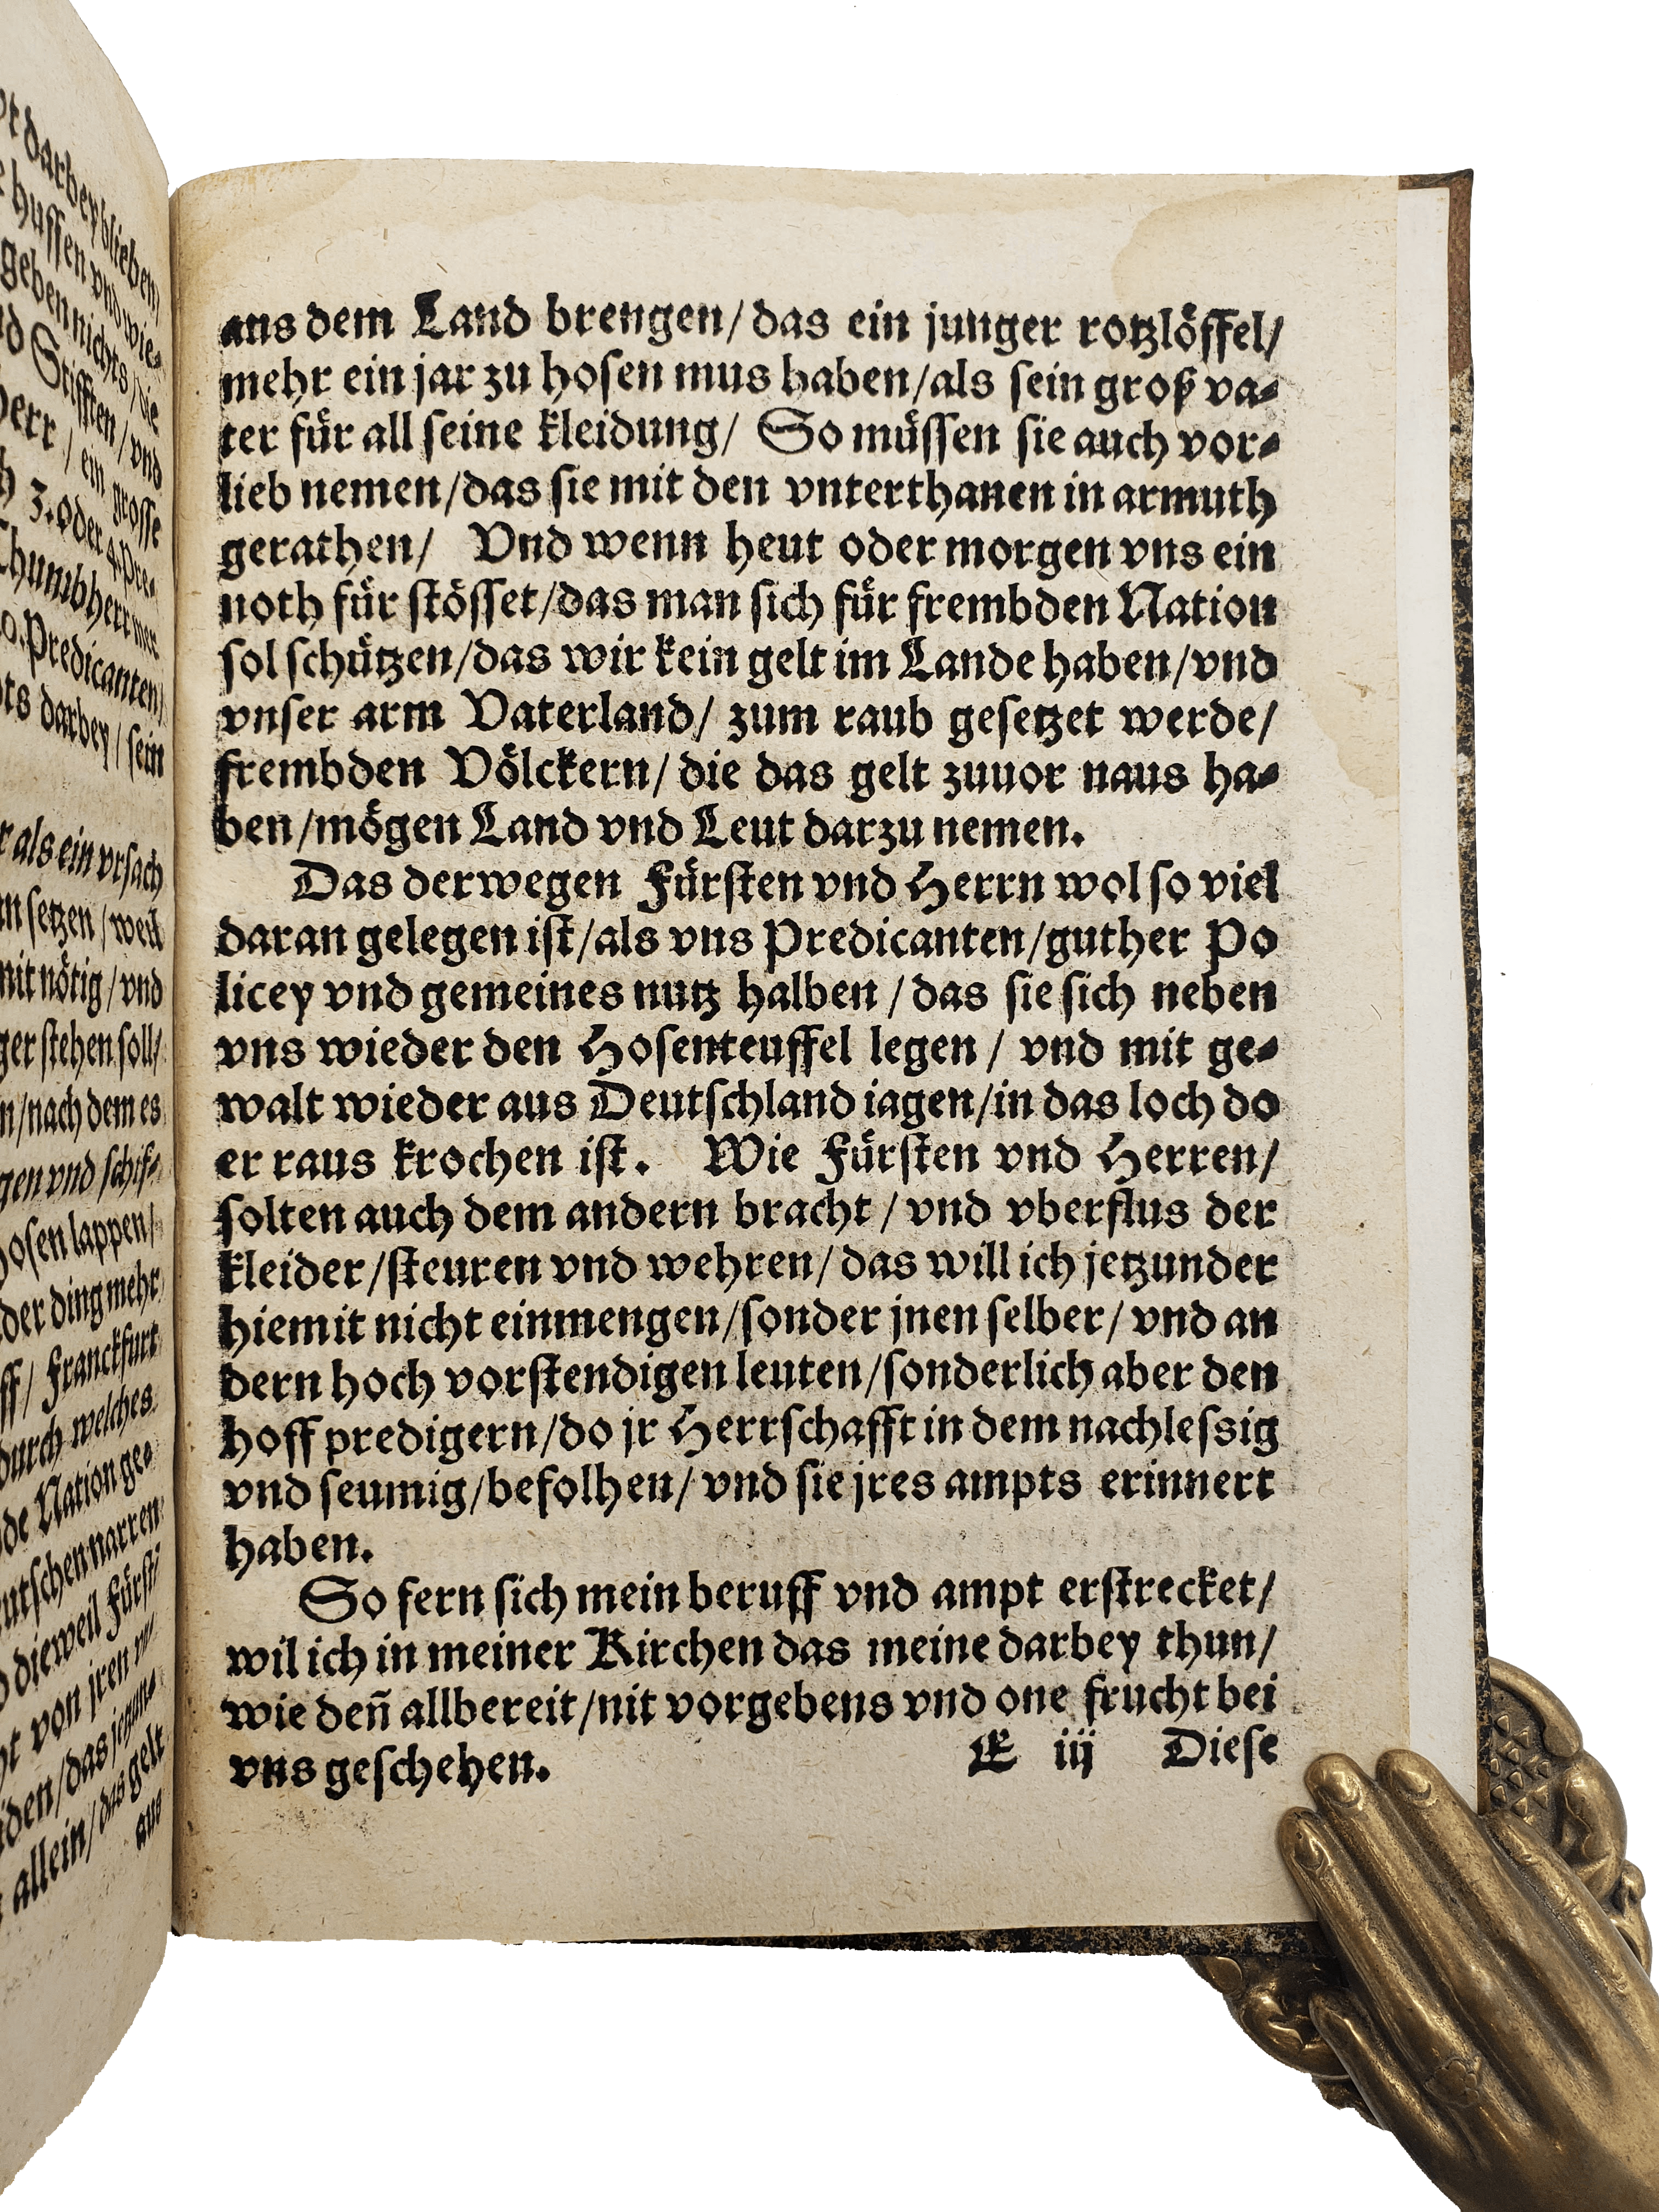 darbey blieben/
Huſſen vnd wie⸗
geben nichts/ die
Stifften/ vnd
Herr/ ein groſſe
3. oder 4. Pre⸗
Thumbherr mer
Predicanten/
darbey/ ſein
als ein vrſach
ſetzen/ weil
nit nötig/ vnd
ſtehen ſoll/
nach dem es
vnd ſchif⸗
lappen/
der ding mehr
Franckfurt
durch welches
Nation ge⸗
narren
dieweil Fürſt⸗
von jren
das
allein/ das gelt
aus
aus dem Land brengen/ das ein junger rotzlöffel/
mehr ein jar zu hoſen mus haben/ als ſein groß va⸗
ter für all ſeine kleidung/ So müſſen ſie auch vor⸗
lieb nemen/ das ſie mit den vnterthanen in armuth
gerathen/ Vnd wenn heut oder morgen vns ein
noth für ſtöſſet/ das man ſich für frembden Nation
ſol ſchützen/ das wir kein gelt im Lande haben/ vnd
vnſer arm Vaterland/ zum raub geſetzet werde/
frembden Völckern/ die das gelt zuuor naus ha⸗
ben/ mögen Land vnd Leut darzu nemen.
Das derwegen Fürſten vnd Herrn wol ſo viel
daran gelegen iſt/ als vns Predicanten/ guther Po
licey vnd gemeines nutz halben/ das ſie ſich neben
vns wieder den Hoſenteuffel legen/ vnd mit ge⸗
walt wieder aus Deutſchland iagen/ in das loch do
er raus krochen iſt. Wie Fürſten vnd Herren/
ſolten auch dem andern bracht/ vnd vberflus der
kleider/ ſteuren vnd wehren/ das will ich jetzunder
hiemit nicht einmengen/ ſonder jnen ſelber/ vnd an
dern hoch vorſtendigen leuten/ ſonderlich aber den
hoff predigern/ do jr Herrſchafft in dem nachleſsig
vnd ſeumig/ befolhen/ vnd ſie jres ampts erinnert
haben.
So fern ſich mein beruff vnd ampt erſtrecket/
wil ich in meiner Kirchen das meine darbey thun/
wie deñ allbereit/ nit vorgebens vnd one frucht bei
vns geſchehen.
E iij Dieſe